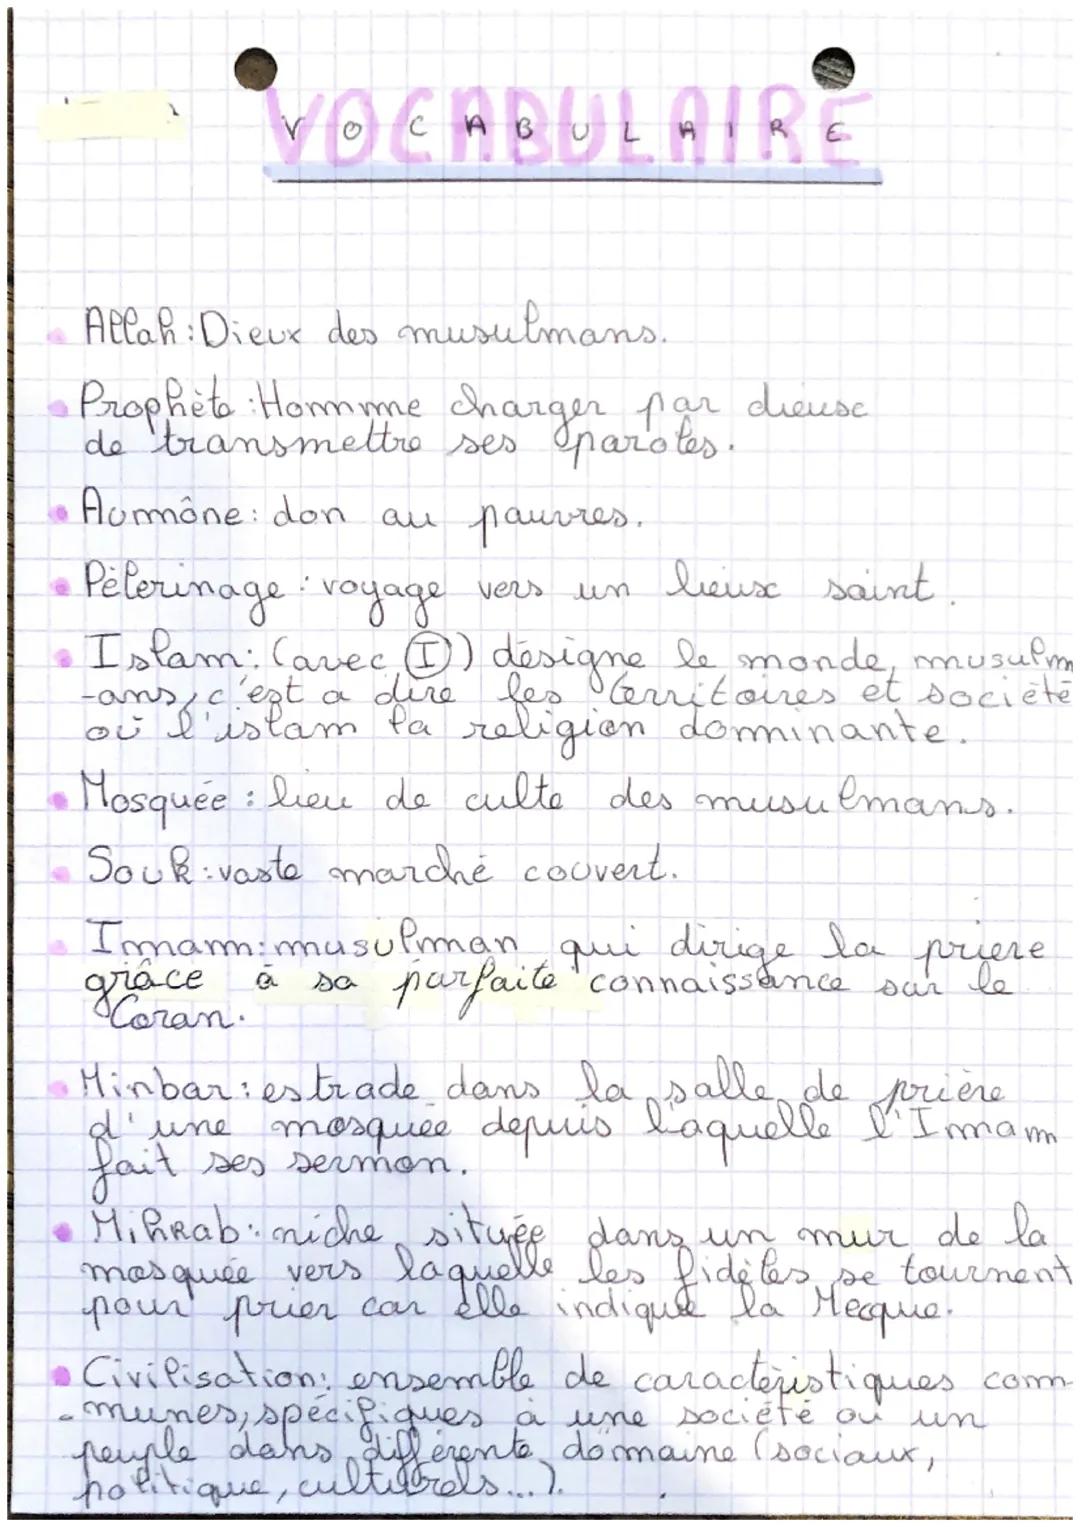 VOCABULAIRE
Allah : Dieux des musulmans.
Prophète : Hommme charger par dieux
de transmettre ses paroles.
Aumône : don au pauvres.
Pèlerinage : voyage vers un lieux saint.
Islam : (avec I) désigne le monde musulm
-ans, c'est a dire les territoires et société
où l'islam la religion dominante.
Mosquée : lieu de culte des musulmans.
Souk : vaste marché couvert.
Imam : musulman qui dirige la priere
grâce à sa parfaite connaissance sur le
Coran.
Minbar : estrade dans la salle de prière
d'une mosquée depuis l'aquelle l'Imam
fait ses sermon.
MihRab : niche située dans un mur de la
mosquée vers laquelle les fidèles se tournent
pour prier car elle indique la Mecque.
Civilisation : ensemble de caractéristiques com-
-munes, spécifiques à une société ou un
peuple dans différente domaine (sociaux,
politique, culturels...).